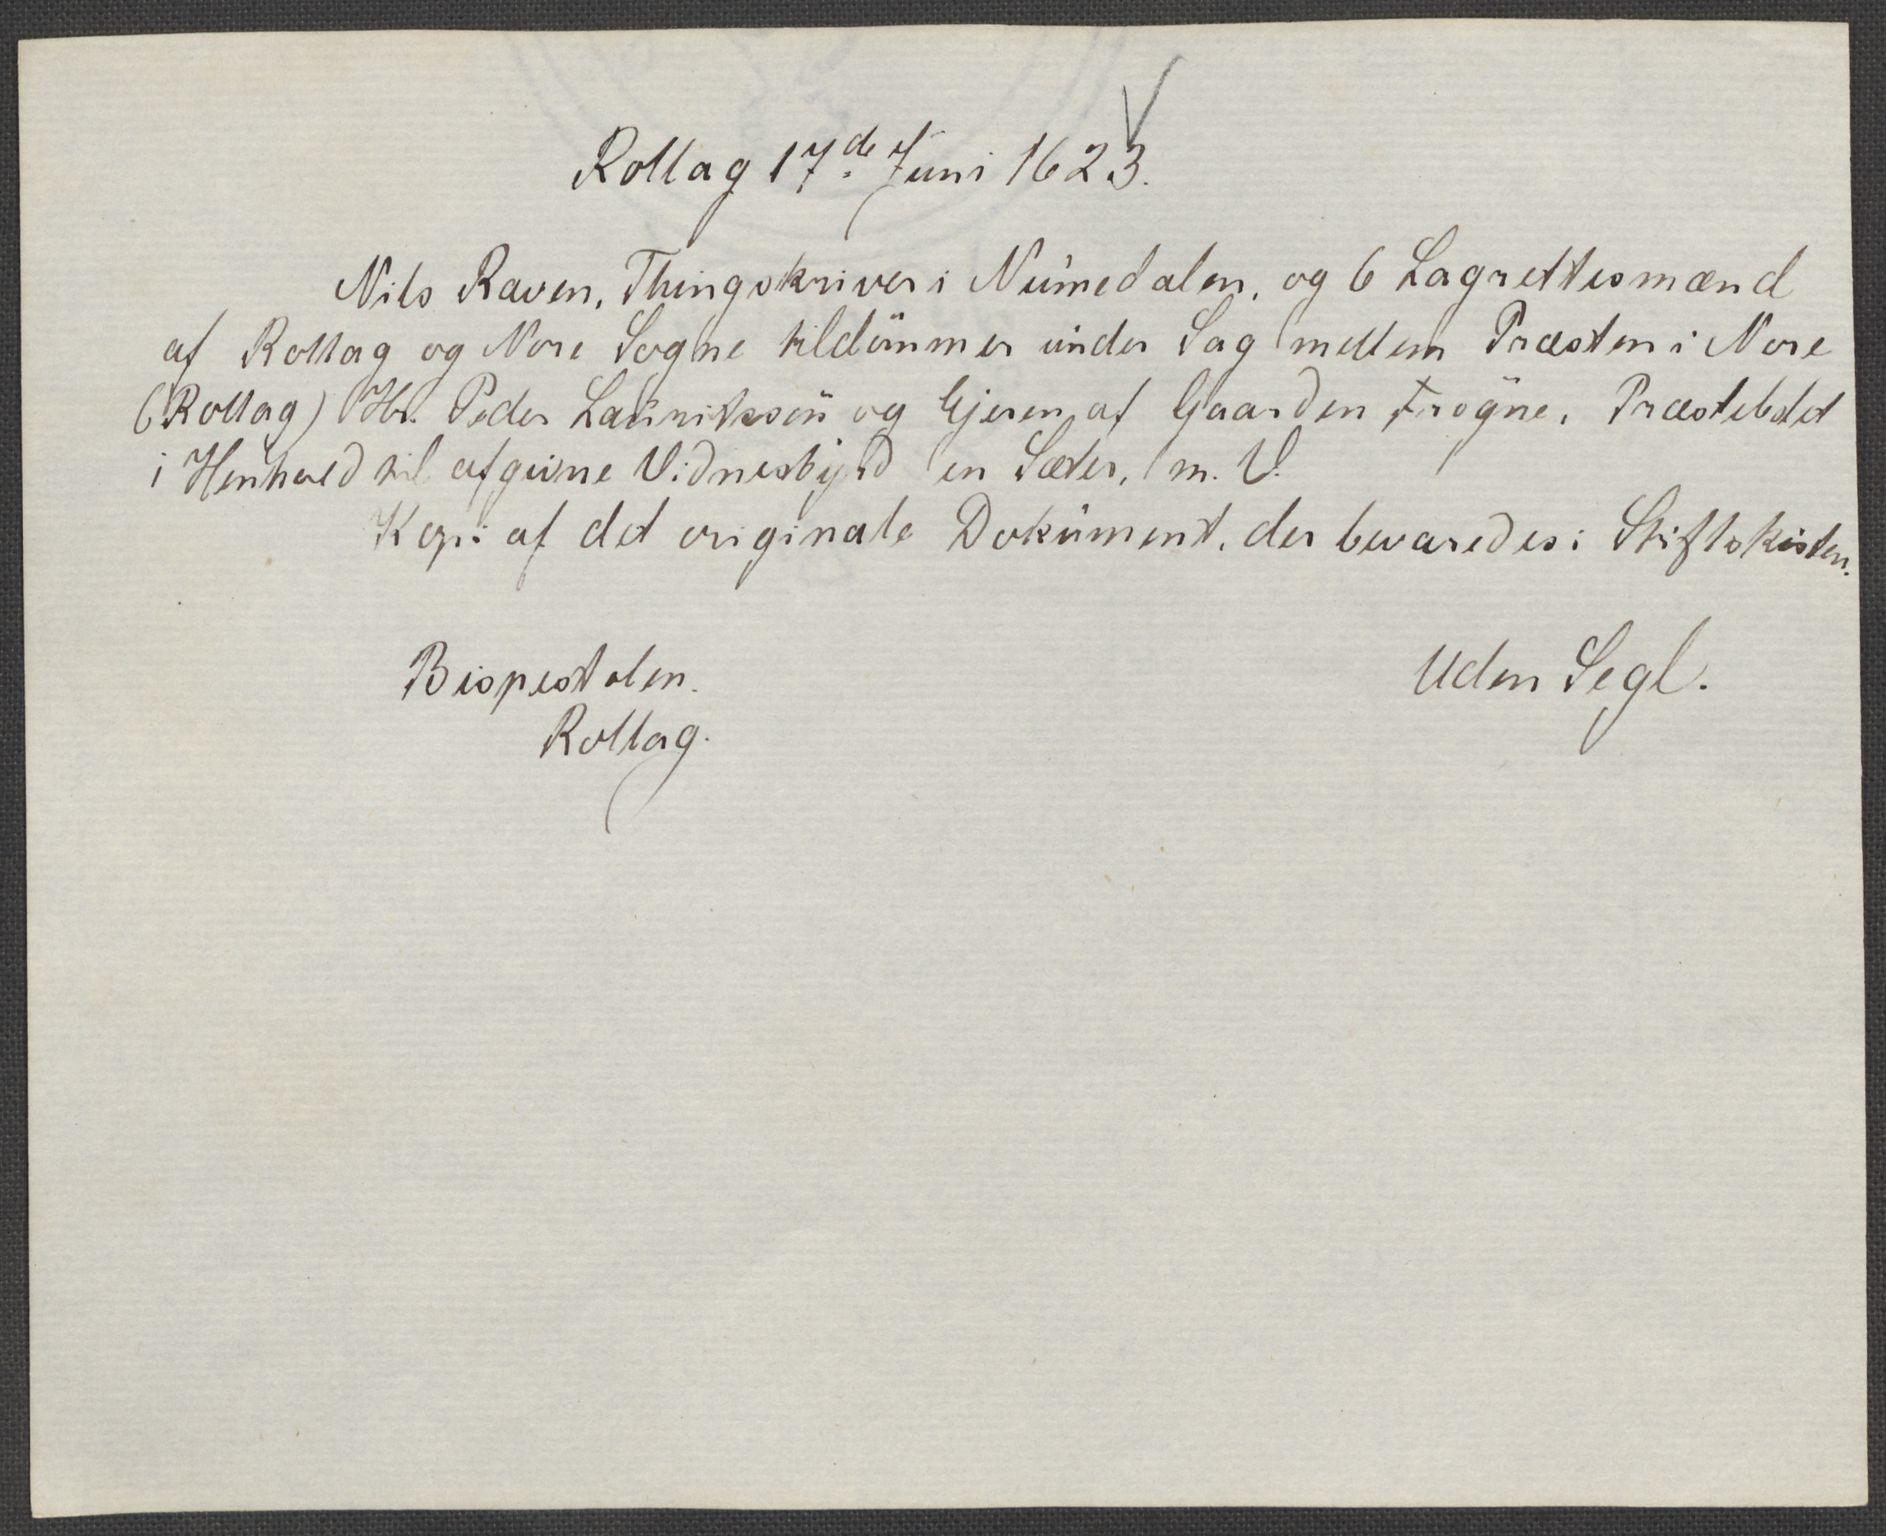 Rollag 17de Juni 1623.
Nils Raven, Thingskriver i Numedalen, og 6 Lagrettesmænd
af Rollag og Nore Sogne tildömmer under Sag mellem Præsten i Nore
(Rollag) Hr. Peder Lauritssön og Ejeren af Gaarden Frögne, Præstebolet
i Henhold til afgivne Vidnesbyrd en Sæter, m. V.
Kopi af det originale Dokument, der bevaredes i Stiftskisten.
Bispestolen.
Uden Segl.
Rollag.